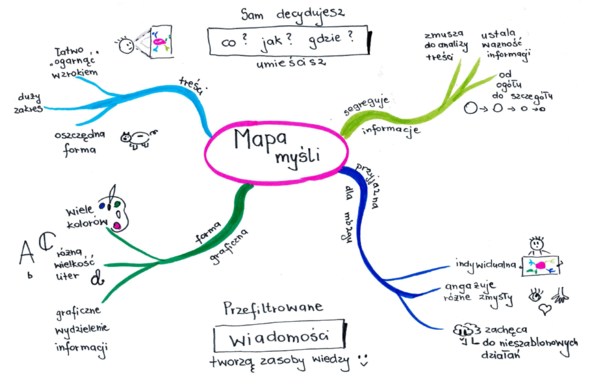 Sam decydujesz
co? jak? gdzie?
umieścisz
Mapa
myśli
treści
łatwo
ogarnąć
wzrokiem
duży
zakres
oszczędna
forma
segreguje
informacje
zmusza
do analizy
treści
ustala
ważność
informacji
od
ogółu
do szczegółu
przyjazna
dla mózgu
indywidualna
angażuje
różne zmysły
zachęca
do nieszablonowych
działań
forma
graficzna
wiele
kolorów
różna
wielkość
liter
A C
b
d
graficzne
wydzielenie
informacji
Przefiltrowane
wiadomości
tworzą zasoby wiedzy